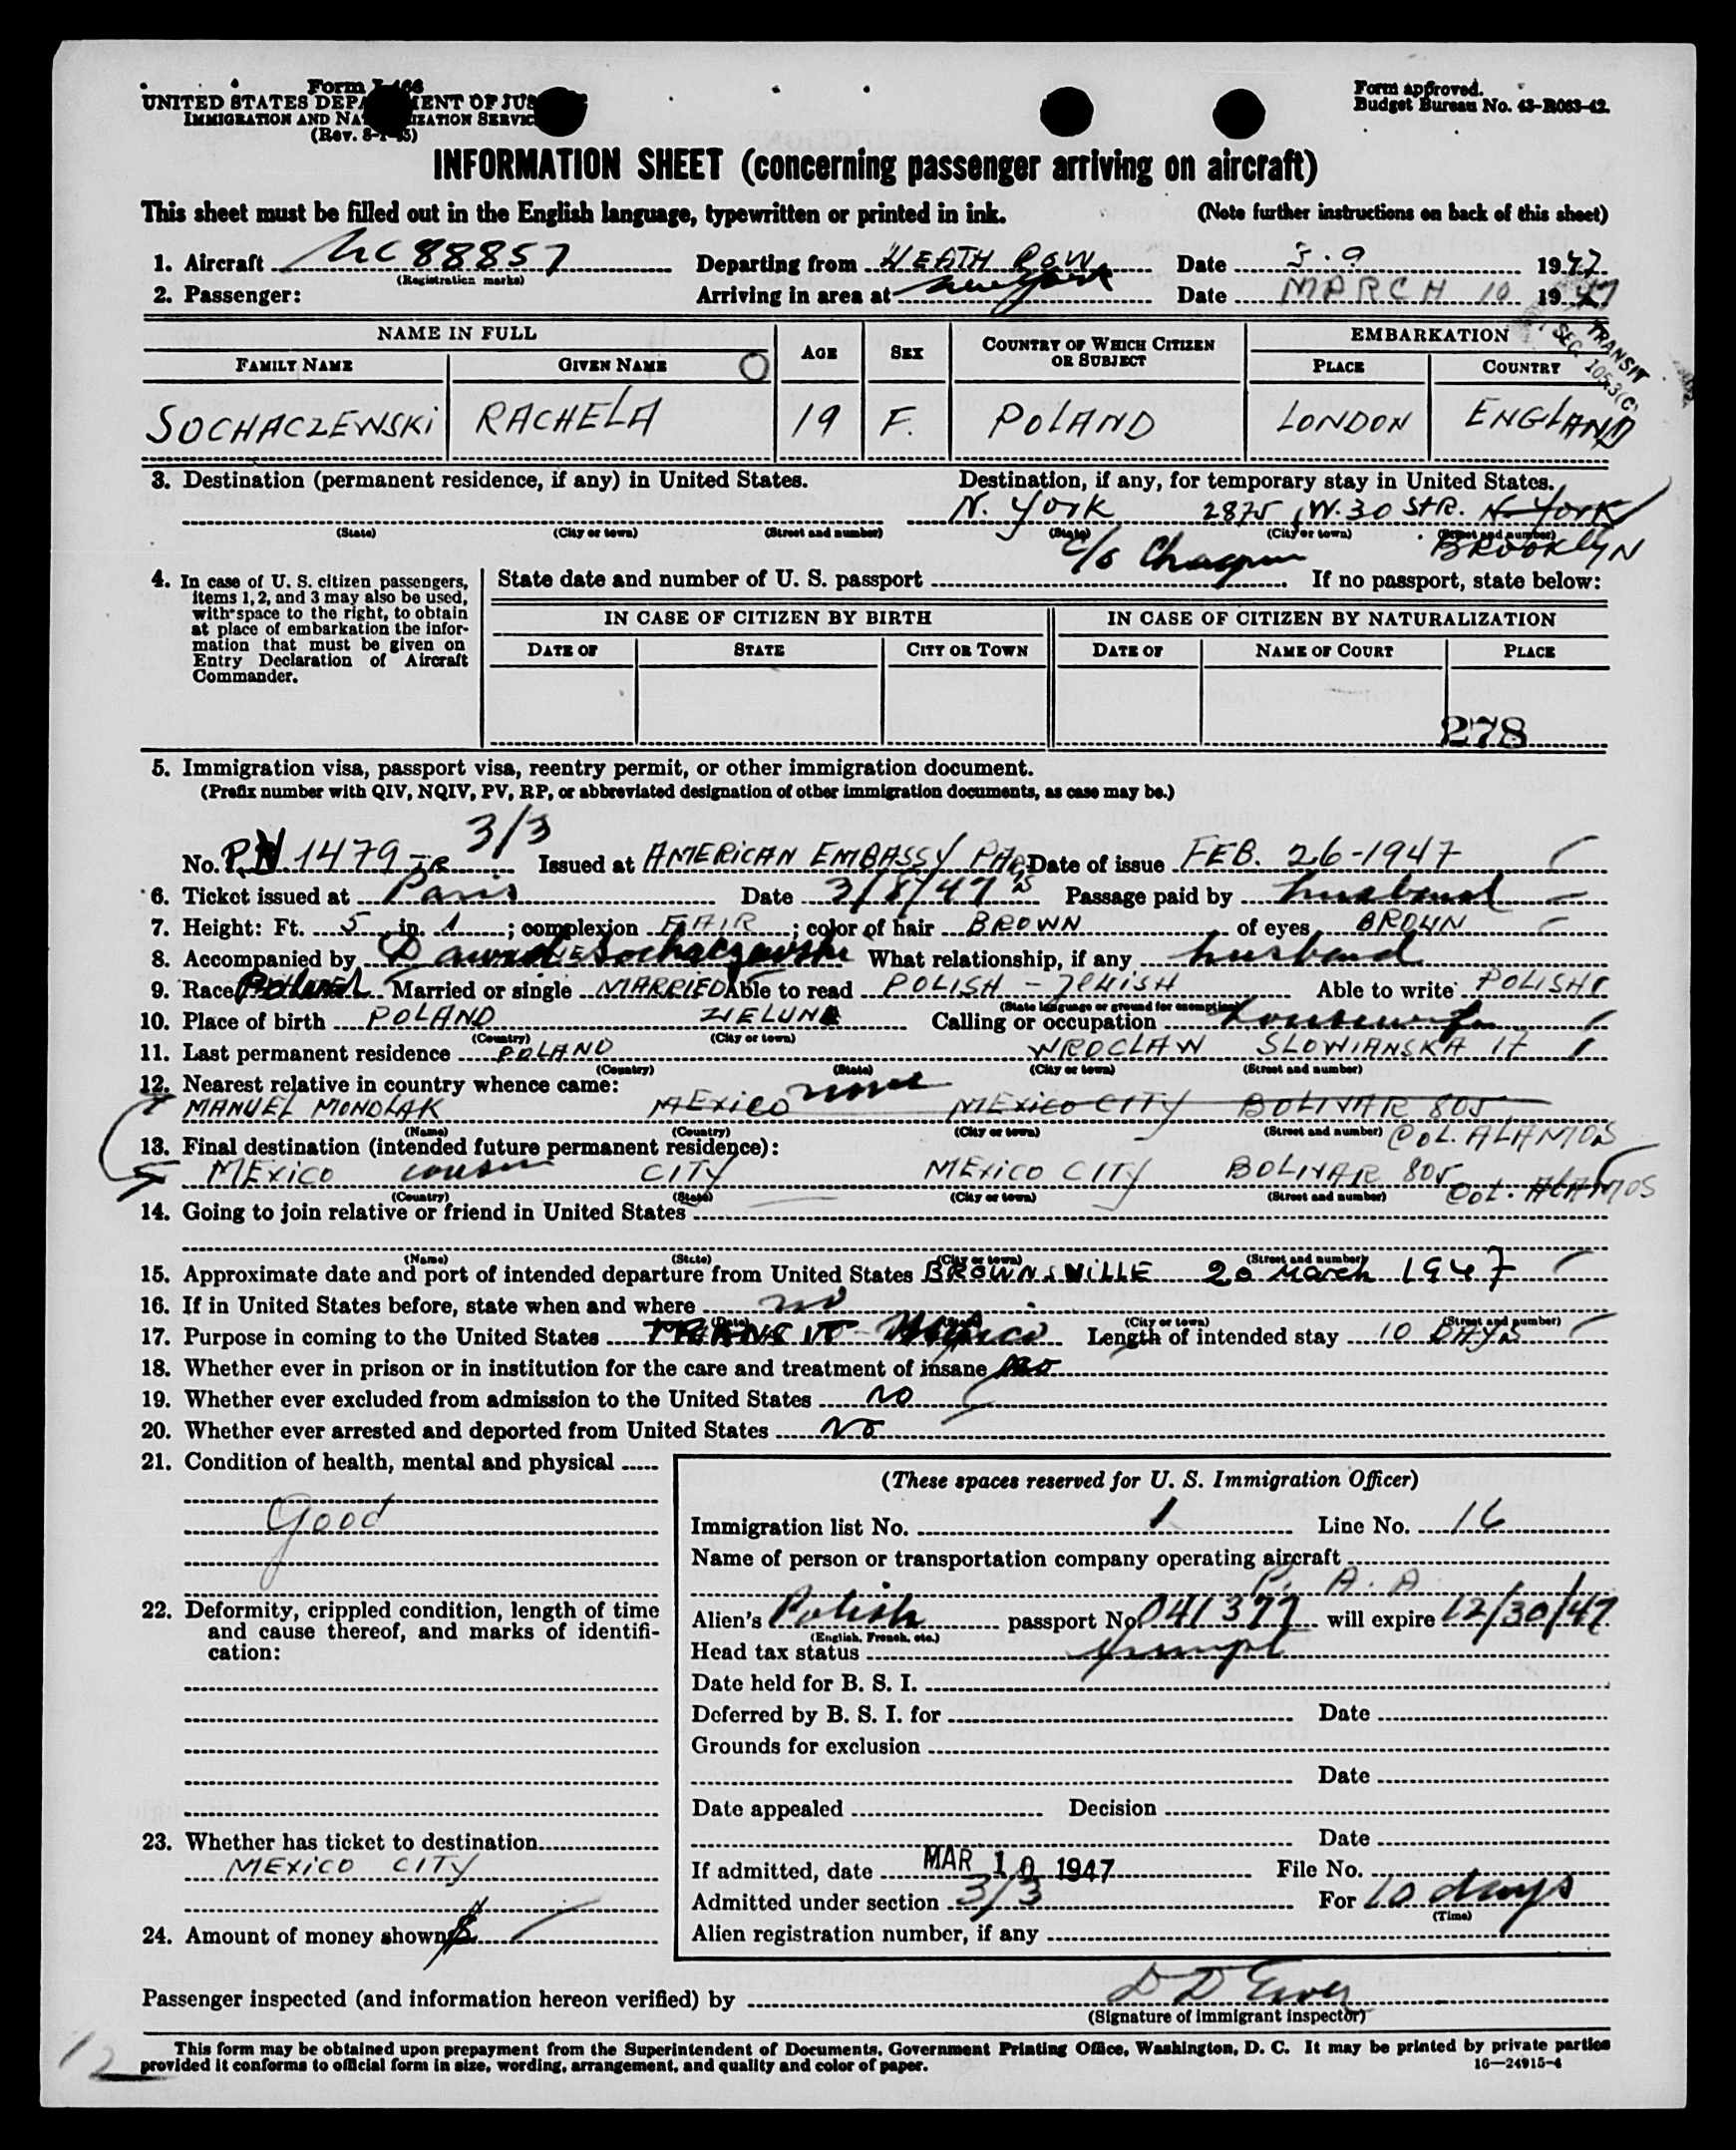 Form I-466
UNITED STATES DEPARTMENT OF JUSTICE
IMMIGRATION AND NATURALIZATION SERVICE
(Rev. 8-1-45)
Form approved.
Budget Bureau No. 43-R063-42.
INFORMATION SHEET (concerning passenger arriving on aircraft)
This sheet must be filled out in the English language, typewritten or printed in ink. (Note further instructions on back of this sheet)
1. Aircraft NC 88857 Departing from HEATH ROW Date 3.9 1947
(Registration marks)
2. Passenger: Arriving in area at New York Date MARCH 10 1947
TRANSIT
SEC. 105.3(C)
NAME IN FULL AGE SEX COUNTRY OF WHICH CITIZEN OR SUBJECT EMBARKATION
FAMILY NAME GIVEN NAME PLACE COUNTRY
SOCHACZEWSKI RACHELA 19 F. POLAND LONDON ENGLAND
3. Destination (permanent residence, if any) in United States. Destination, if any, for temporary stay in United States.
N. York 2875 W. 30 STR. N. York
(State) (City or town) (Street and number) (State) (City or town) (Street and number)
c/o BROOKLYN
4. In case of U. S. citizen passengers, items 1, 2, and 3 may also be used, with space to the right, to obtain at place of embarkation the information that must be given on Entry Declaration of Aircraft Commander.
State date and number of U. S. passport If no passport, state below:
IN CASE OF CITIZEN BY BIRTH IN CASE OF CITIZEN BY NATURALIZATION
DATE OF STATE CITY OR TOWN DATE OF NAME OF COURT PLACE
278
5. Immigration visa, passport visa, reentry permit, or other immigration document.
(Prefix number with QIV, NQIV, PV, RP, or abbreviated designation of other immigration documents, as case may be.)
3/3
No. PV 1479-TR Issued at AMERICAN EMBASSY PARIS Date of issue FEB. 26-1947
6. Ticket issued at Paris Date 3/8/47 Passage paid by husband
7. Height: Ft. 5 in. 1; complexion FAIR; color of hair BROWN of eyes BROWN
8. Accompanied by Dawid Sochaczewski What relationship, if any husband
9. Race Married or single MARRIED Able to read POLISH - JEWISH Able to write POLISH
(State language or ground for exemption)
10. Place of birth POLAND WIELUN Calling or occupation housewife
(Country) (City or town)
11. Last permanent residence POLAND WROCLAW SLOWIANSKA 17
(Country) (State) (City or town) (Street and number)
12. Nearest relative in country whence came: none
MANUEL MONDLAK MEXICO MEXICO CITY BOLIVAR 805
(Name) (Country) (City or town) (Street and number) COL. ALAMOS
13. Final destination (intended future permanent residence):
MEXICO cousin CITY MEXICO CITY BOLIVAR 805 COL. ALAMOS
(Country) (State) (City or town) (Street and number)
14. Going to join relative or friend in United States
(Name) (State) (City or town) (Street and number)
15. Approximate date and port of intended departure from United States BROWNSVILLE 20 March 1947
16. If in United States before, state when and where no
(Date) (State) (City or town) (Street and number)
17. Purpose in coming to the United States TRANSIT - Mexico Length of intended stay 10 DAYS
18. Whether ever in prison or in institution for the care and treatment of insane no
19. Whether ever excluded from admission to the United States NO
20. Whether ever arrested and deported from United States No
21. Condition of health, mental and physical
Good
22. Deformity, crippled condition, length of time and cause thereof, and marks of identification:
23. Whether has ticket to destination
MEXICO CITY
24. Amount of money shown $
(These spaces reserved for U. S. Immigration Officer)
Immigration list No. 1 Line No. 16
Name of person or transportation company operating aircraft
P. A. A
Alien's Polish passport No. 041377 will expire 12/30/47
(English, French, etc.)
Head tax status exempt
Date held for B. S. I.
Deferred by B. S. I. for Date
Grounds for exclusion
Date
Date appealed Decision
Date
If admitted, date MAR 10 1947 File No.
Admitted under section 3/3 For 10 days
(Time)
Alien registration number, if any
Passenger inspected (and information hereon verified) by
(Signature of immigrant inspector)
12
This form may be obtained upon prepayment from the Superintendent of Documents, Government Printing Office, Washington, D. C. It may be printed by private parties
provided it conforms to official form in size, wording, arrangement, and quality and color of paper.
16—24915-4